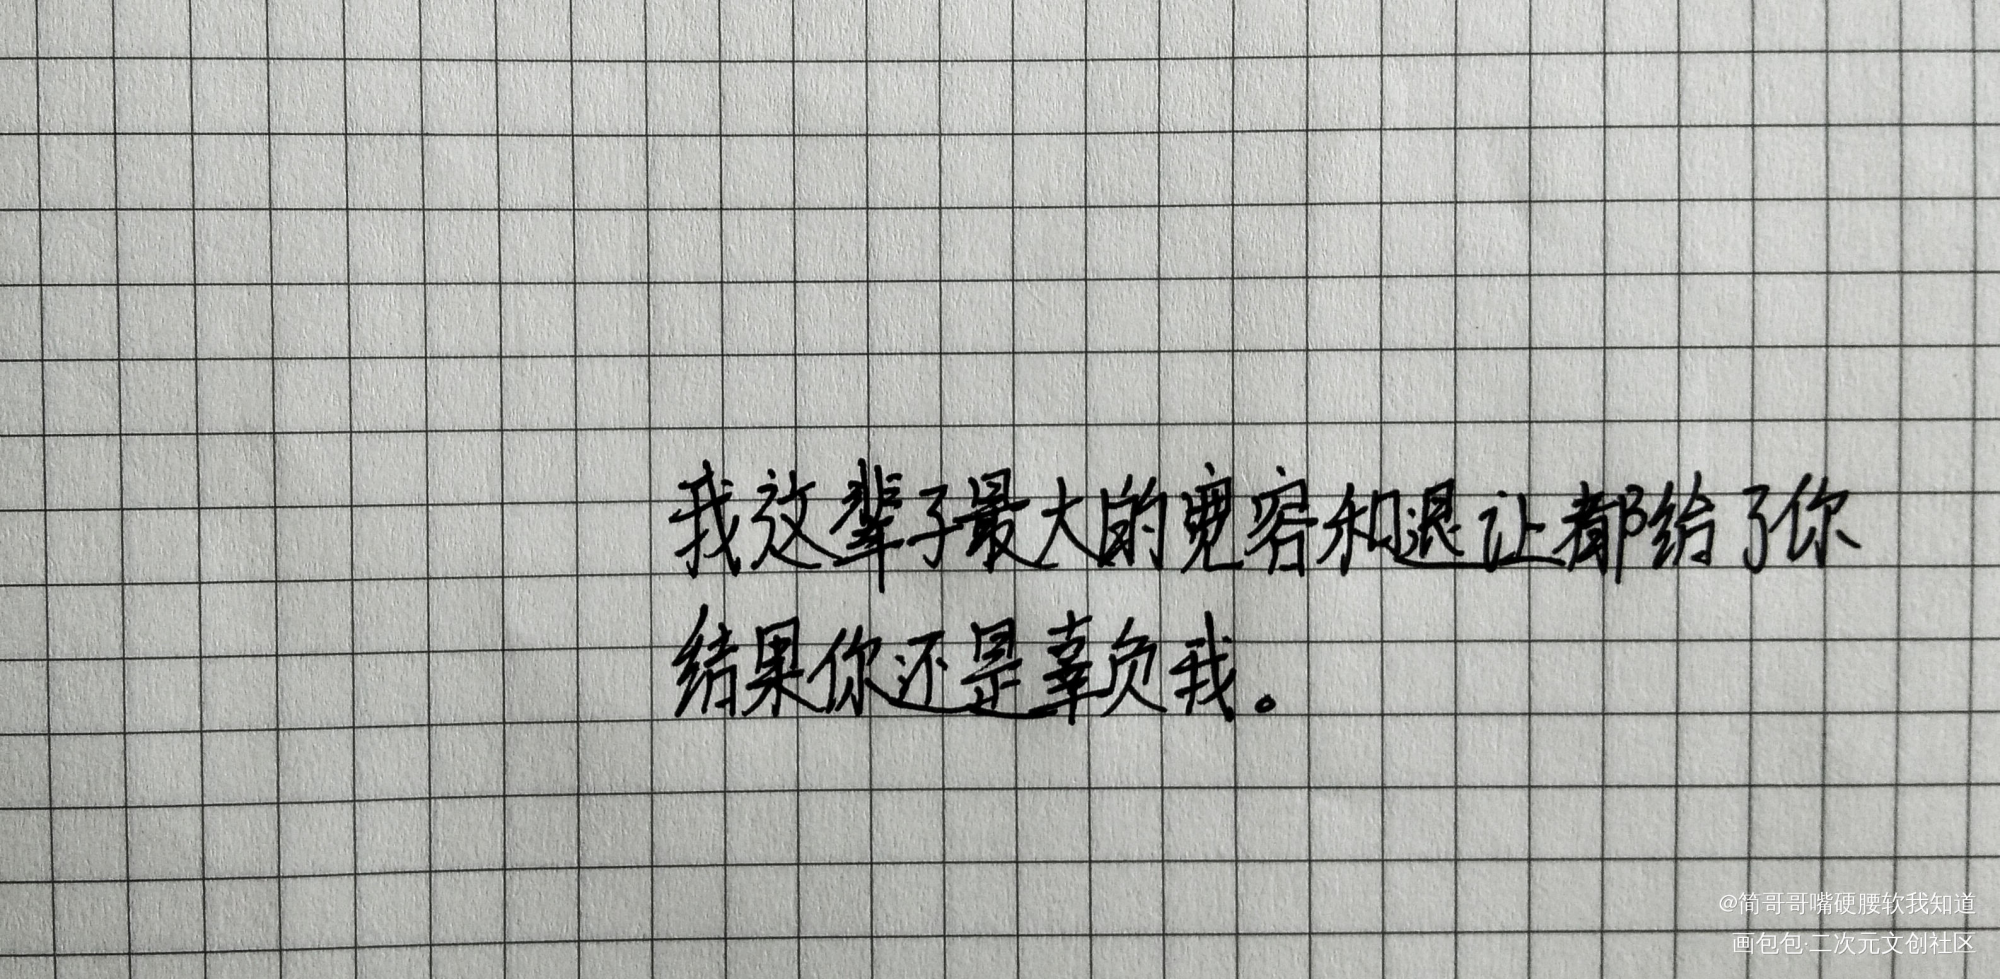 我这辈子最大的宽容和退让都给了你
结果你还是辜负我。
@简哥哥嘴硬腰软我知道
画包包·二次元文创社区